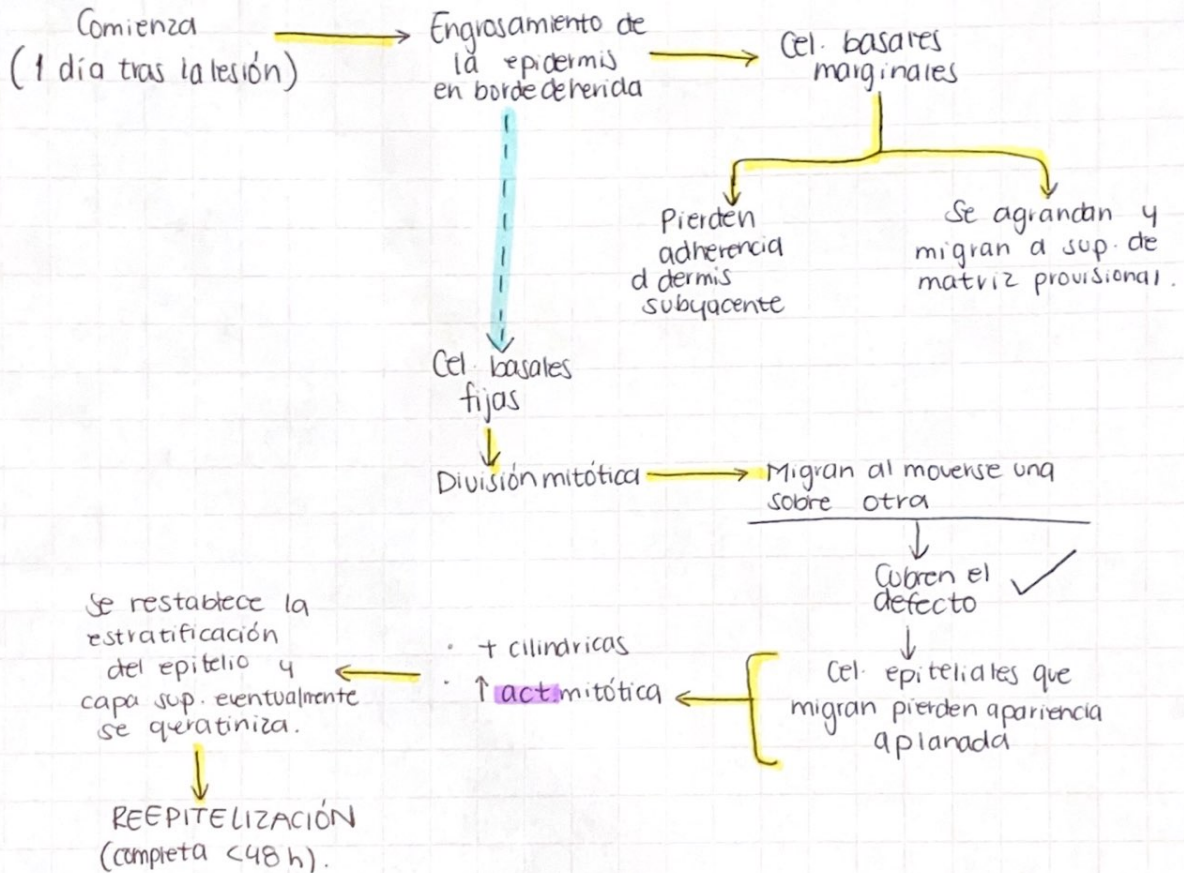 Comienza
(1 día tras la lesión)
Engrosamiento de
la epidermis
en borde de herida
Cel. basares
marginales
Pierden
adherencia
d dermis
subyacente
Se agrandan y
migran a sup. de
matriz provisional.
Cel. basales
fijas
División mitótica
Migran al moverse una
sobre otra
Cubren el
defecto
Cel. epiteliales que
migran pierden apariencia
aplanada
· + cilindricas
· ↑ act. mitótica
Se restablece la
estratificación
del epitelio y
capa sup. eventualmente
se queratiniza.
REEPITELIZACIÓN
(completa <48 h).